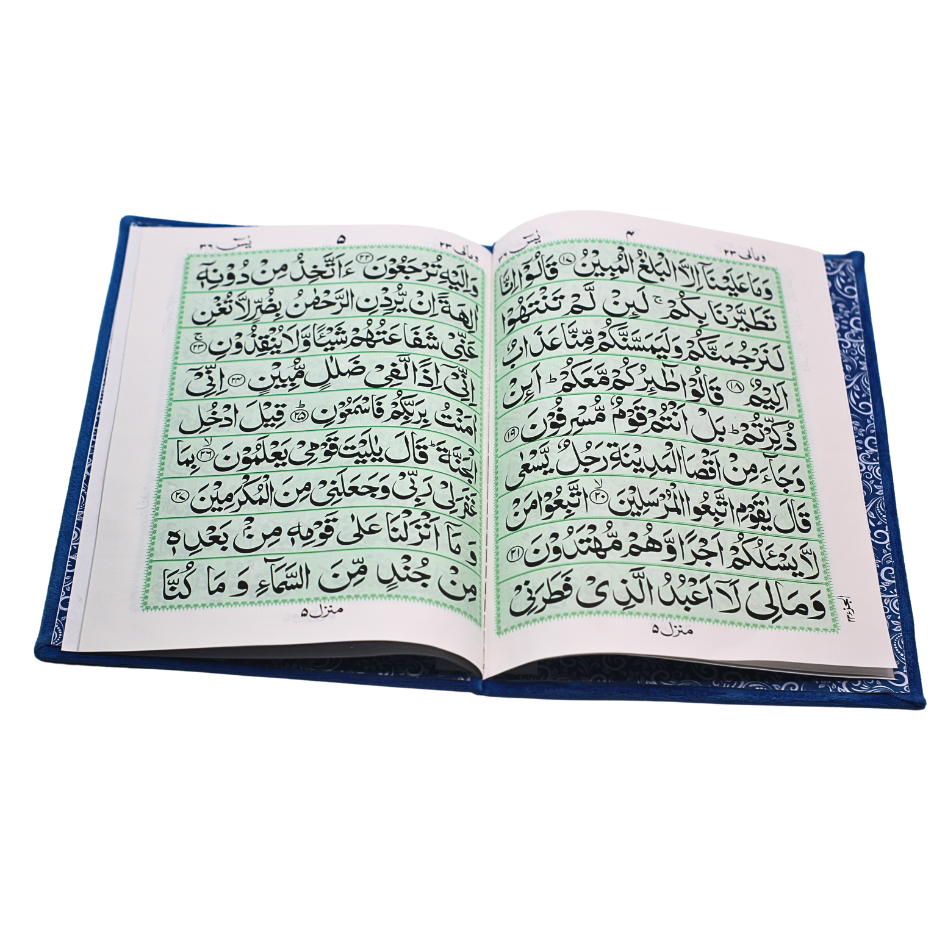 ومالی ٢٣
٤
یٰسٓ
وَمَا عَلَيْنَاۤ اِلَّا الْبَلٰغُ الْمُبِيْنُ ﴿١٧﴾ قَالُوْۤا اِنَّا
تَطَيَّرْنَا بِكُمْ ۚ لَئِنْ لَّمْ تَنْتَهُوْا
لَنَرْجُمَنَّكُمْ وَلَيَمَسَّنَّكُمْ مِّنَّا عَذَابٌ
اَلِيْمٌ ﴿١٨﴾ قَالُوْا طَآئِرُكُمْ مَّعَكُمْ ؕ اَئِنْ
ذُكِّرْتُمْ ؕ بَلْ اَنْتُمْ قَوْمٌ مُّسْرِفُوْنَ ﴿١٩﴾
وَجَآءَ مِنْ اَقْصَا الْمَدِيْنَةِ رَجُلٌ يَّسْعٰى
قَالَ يٰقَوْمِ اتَّبِعُوا الْمُرْسَلِيْنَ ﴿٢٠﴾ ۙ اتَّبِعُوْا مَنْ
لَّا يَسْـَٔلُكُمْ اَجْرًا وَّهُمْ مُّهْتَدُوْنَ ﴿٢١﴾
وَمَا لِىَ لَاۤ اَعْبُدُ الَّذِىْ فَطَرَنِىْ
منزل ٥
ومالی ٢٣
٥
یٰسٓ ٣٦
وَاِلَيْهِ تُرْجَعُوْنَ ﴿٢٢﴾ ءَاَتَّخِذُ مِنْ دُوْنِهٖۤ
اٰلِهَةً اِنْ يُّرِدْنِ الرَّحْمٰنُ بِضُرٍّ لَّا تُغْنِ
عَنِّىْ شَفَاعَتُهُمْ شَيْـًٔا وَّلَا يُنْقِذُوْنِ ۚ ﴿٢٣﴾
اِنِّىْۤ اِذًا لَّفِىْ ضَلٰلٍ مُّبِيْنٍ ﴿٢٤﴾ اِنِّىْۤ
اٰمَنْتُ بِرَبِّكُمْ فَاسْمَعُوْنِ ؕ ﴿٢٥﴾ قِيْلَ ادْخُلِ
الْجَنَّةَ ؕ قَالَ يٰلَيْتَ قَوْمِىْ يَعْلَمُوْنَ ۙ ﴿٢٦﴾ بِمَا
غَفَرَ لِىْ رَبِّىْ وَجَعَلَنِىْ مِنَ الْمُكْرَمِيْنَ ﴿٢٧﴾
وَمَاۤ اَنْزَلْنَا عَلٰى قَوْمِهٖ مِنْۢ بَعْدِهٖ
مِنْ جُنْدٍ مِّنَ السَّمَآءِ وَمَا كُنَّا
منزل ٥